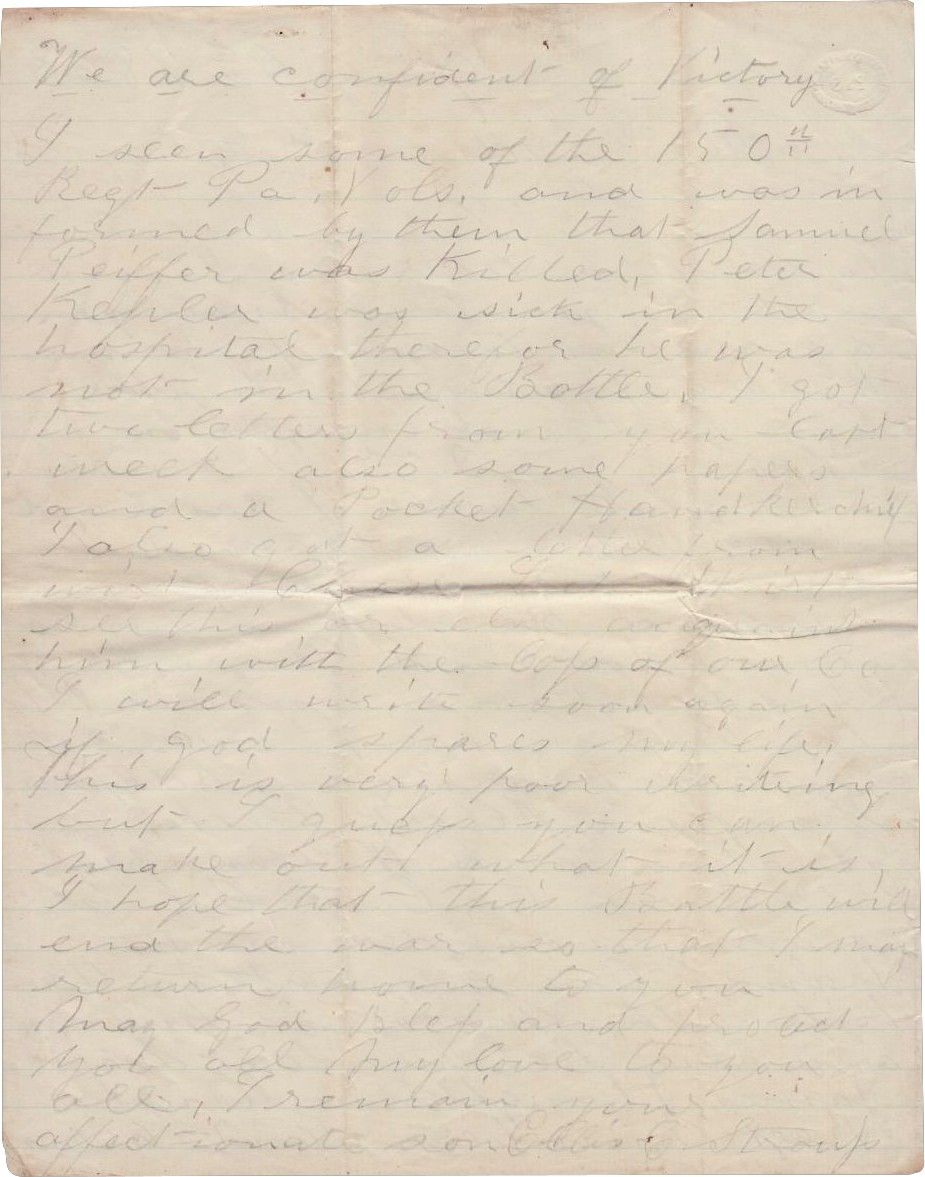 We are confident of Victory
I seen some of the 150th
Regt Pa. Vols. and was in
formed by them that Samuel
Peiffer was Killed, Peter
Kepler was sick in the
hospital therefor he was
not in the Battle, I got
two letters from you last
week also some papers
and a Pocket Handkerchief
I also got a letter from
see this or else
him with the Cops of our Co
I will write soon again
if god spares my life,
This is very poor writing
but I guess you can
make out what it is,
I hope that this Battle will
end the war so that I may
return home to you
May God Bless and protect
you all My love to you
all, I remain your
affectionate son Ellis C Stroups